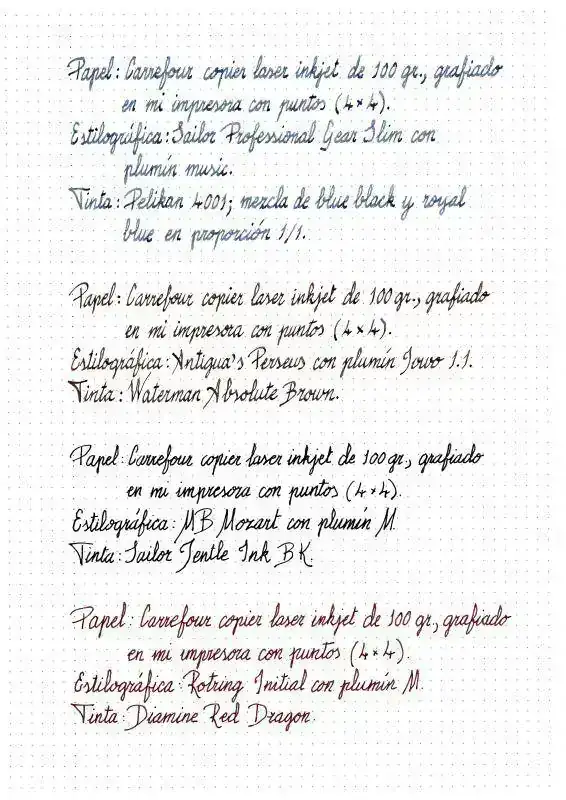 Papel: Carrefour copier laser inkjet de 100 gr., grafiado
en mi impresora con puntos (4×4).
Estilográfica: Sailor Professional Gear Slim con
plumín music.
Tinta: Pelikan 4001; mezcla de blue black y royal
blue en proporción 1/1.
Papel: Carrefour copier laser inkjet de 100 gr., grafiado
en mi impresora con puntos (4×4).
Estilográfica: Antigua's Perseus con plumín Jowo 1.1.
Tinta: Waterman Absolute Brown.
Papel: Carrefour copier laser inkjet de 100 gr., grafiado
en mi impresora con puntos (4×4).
Estilográfica: MB Mozart con plumín M.
Tinta: Sailor Jentle Ink BK.
Papel: Carrefour copier laser inkjet de 100 gr., grafiado
en mi impresora con puntos (4×4).
Estilográfica: Rotring Initial con plumín M.
Tinta: Diamine Red Dragon.